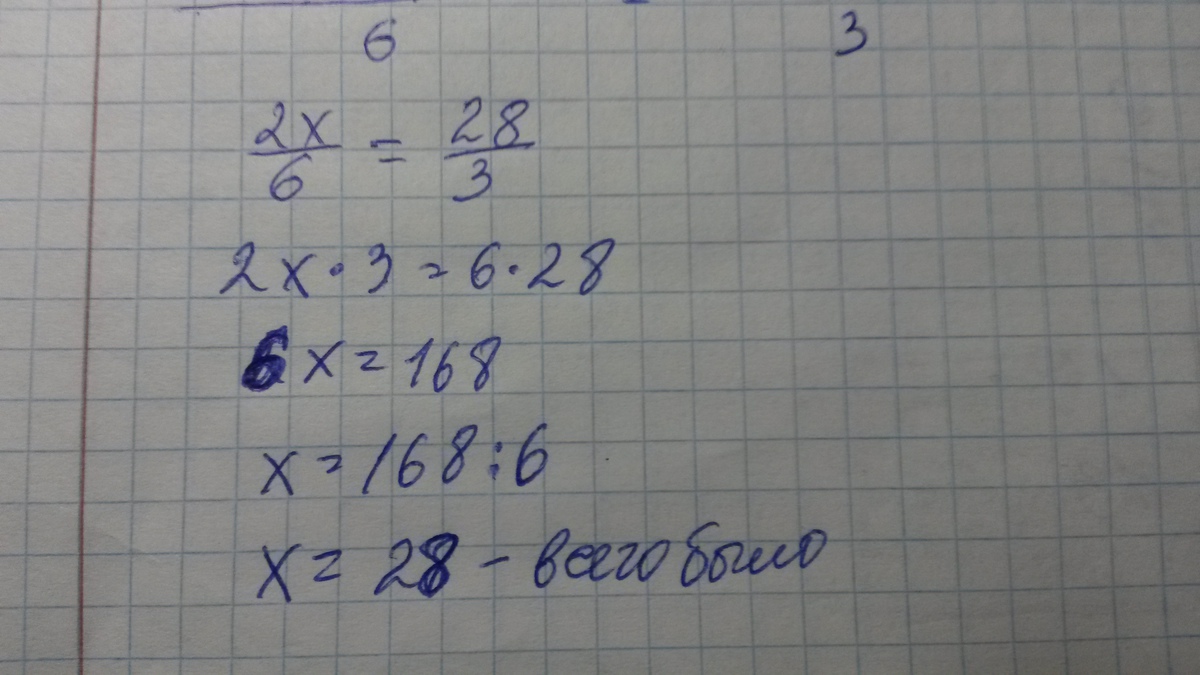 6 3
2x/6 = 28/3
2x·3=6·28
6x=168
x=168:6
x=28 - всего было